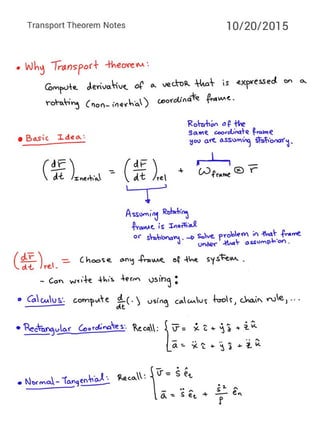 Transport Theorem Notes 10/20/2015
• Why Transport theorem:
Compute derivative of a vector that is expressed on a
rotating (non-inertial) coordinate frame.
• Basic Idea:
Rotation of the
same coordinate frame
you are assuming stationary.
(dr̄/dt)Inertial = (dr̄/dt)rel + ω̄frame ⊗ r̄
Assuming Rotating
frame is Inertial
or stationary. → Solve problem in that frame
under that assumption.
(dr̄/dt)rel. = Choose any frame of the system.
- Can write this term using:
• Calculus: compute d/dt(·) using calculus tools, chain rule, ...
• Rectangular Coordinates: Recall: { v̄ = ẋ î + ẏ ĵ + ż k̂
ā = ẍ î + ÿ ĵ + z̈ k̂
• Normal-Tangential: Recall: { v̄ = ṡ êt
ā = s̈ êt + ṡ²/ρ ên